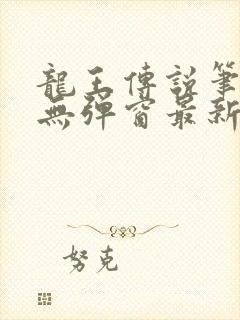 龍王傳說筆
無彈窗最新
努克